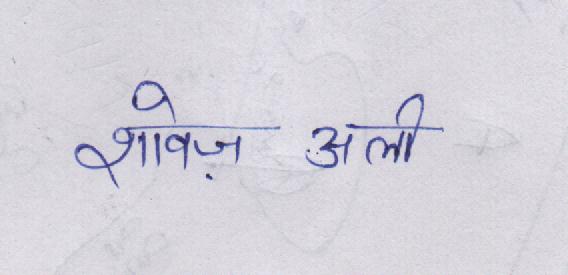 शोवेज़ अली